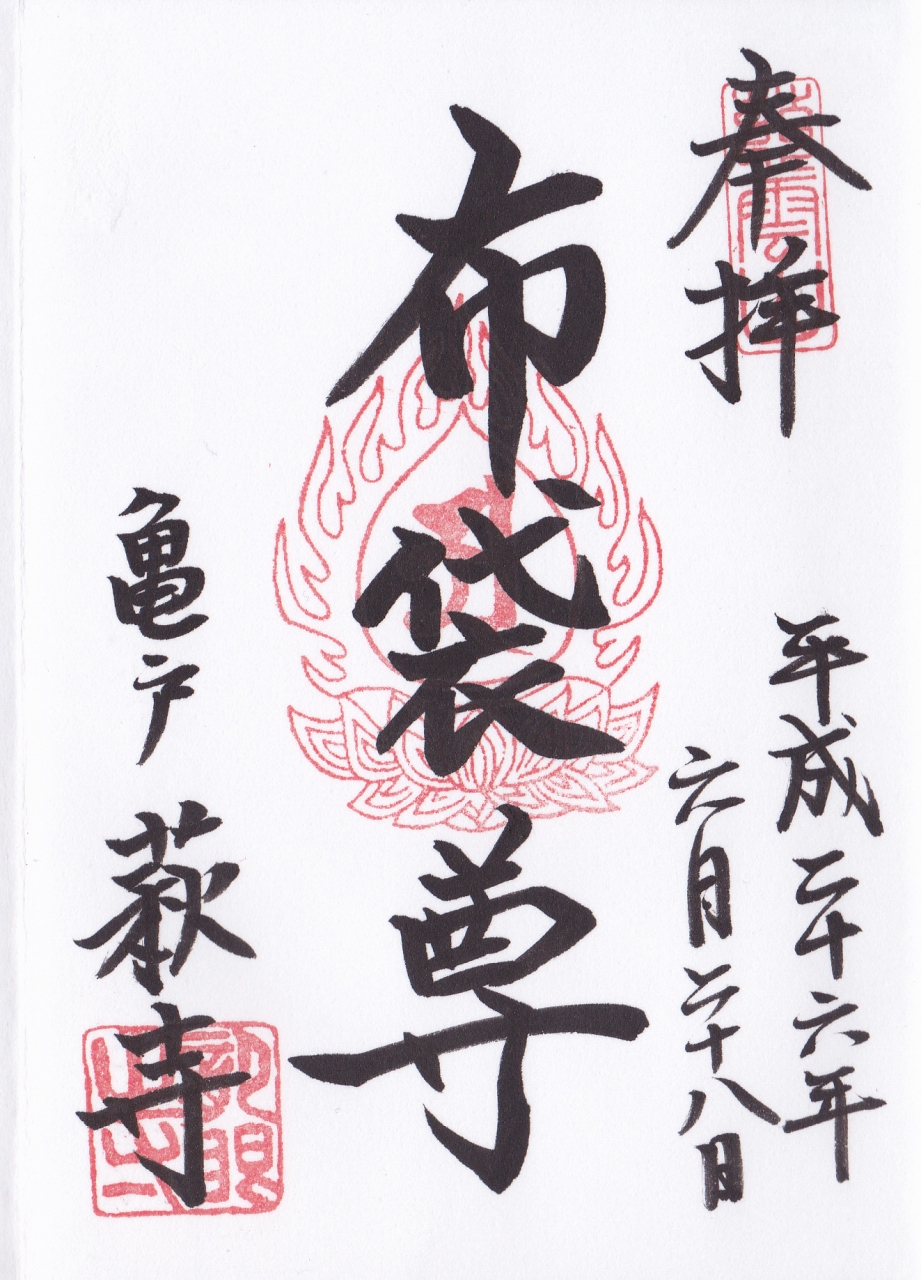 奉拝
平成二十六年
六月二十八日
布袋尊
亀戸 萩寺